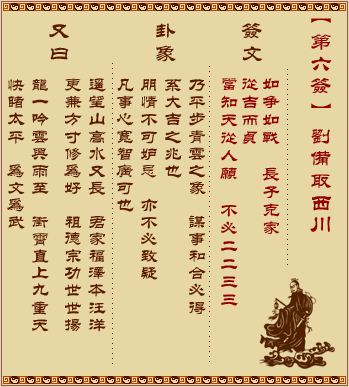 【第六簽】 劉備取西川
簽文
如爭如戰 長子克家
從吉而貞
當知天從人願 不必二二三三
卦象
乃平步青雲之象 謀事和合必得
系大吉之兆也
朋情不可妒忌 亦不必致疑
凡事心寬智廣可也
又曰
遙望山高水又長 君家福澤本汪洋
更兼方寸修爲好 祖德宗功世世揚
龍一吟雲興雨至 衝霄直上九重天
快睹太平 爲文爲武